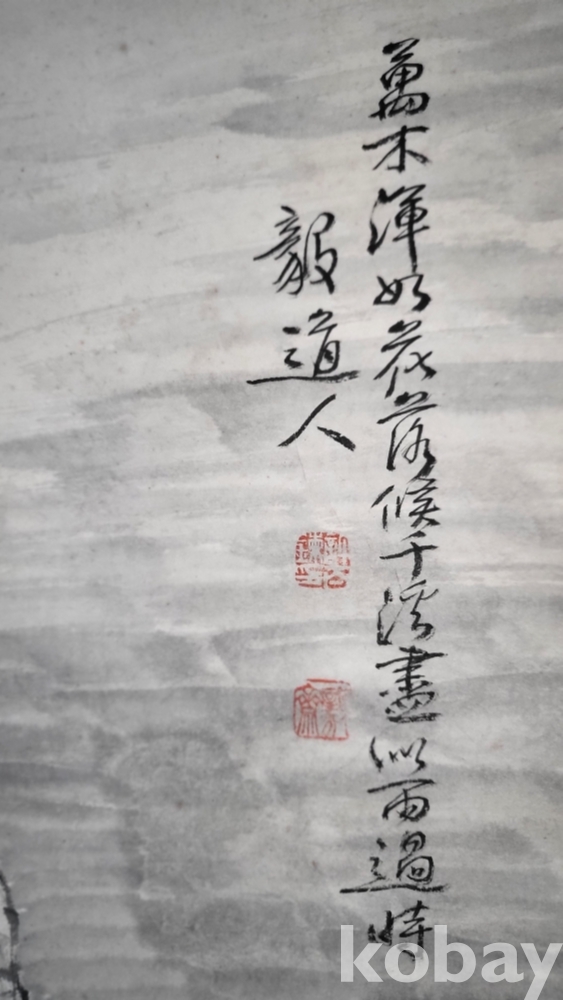 萬木渾如花落候千溪盡似雨過時
毅道人
kobay